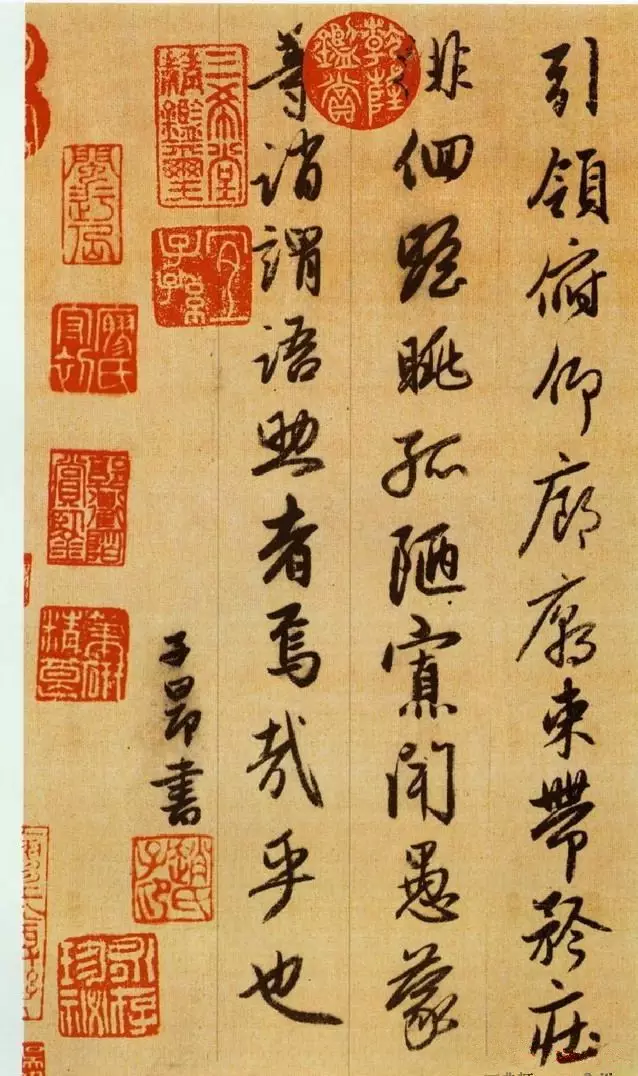 引領俯仰廊廟束帶矜莊
徘徊瞻眺孤陋寡聞愚蒙
等誚謂語助者焉哉乎也
子昂書
乾隆鑑賞
三希堂精鑑璽
宜子孫